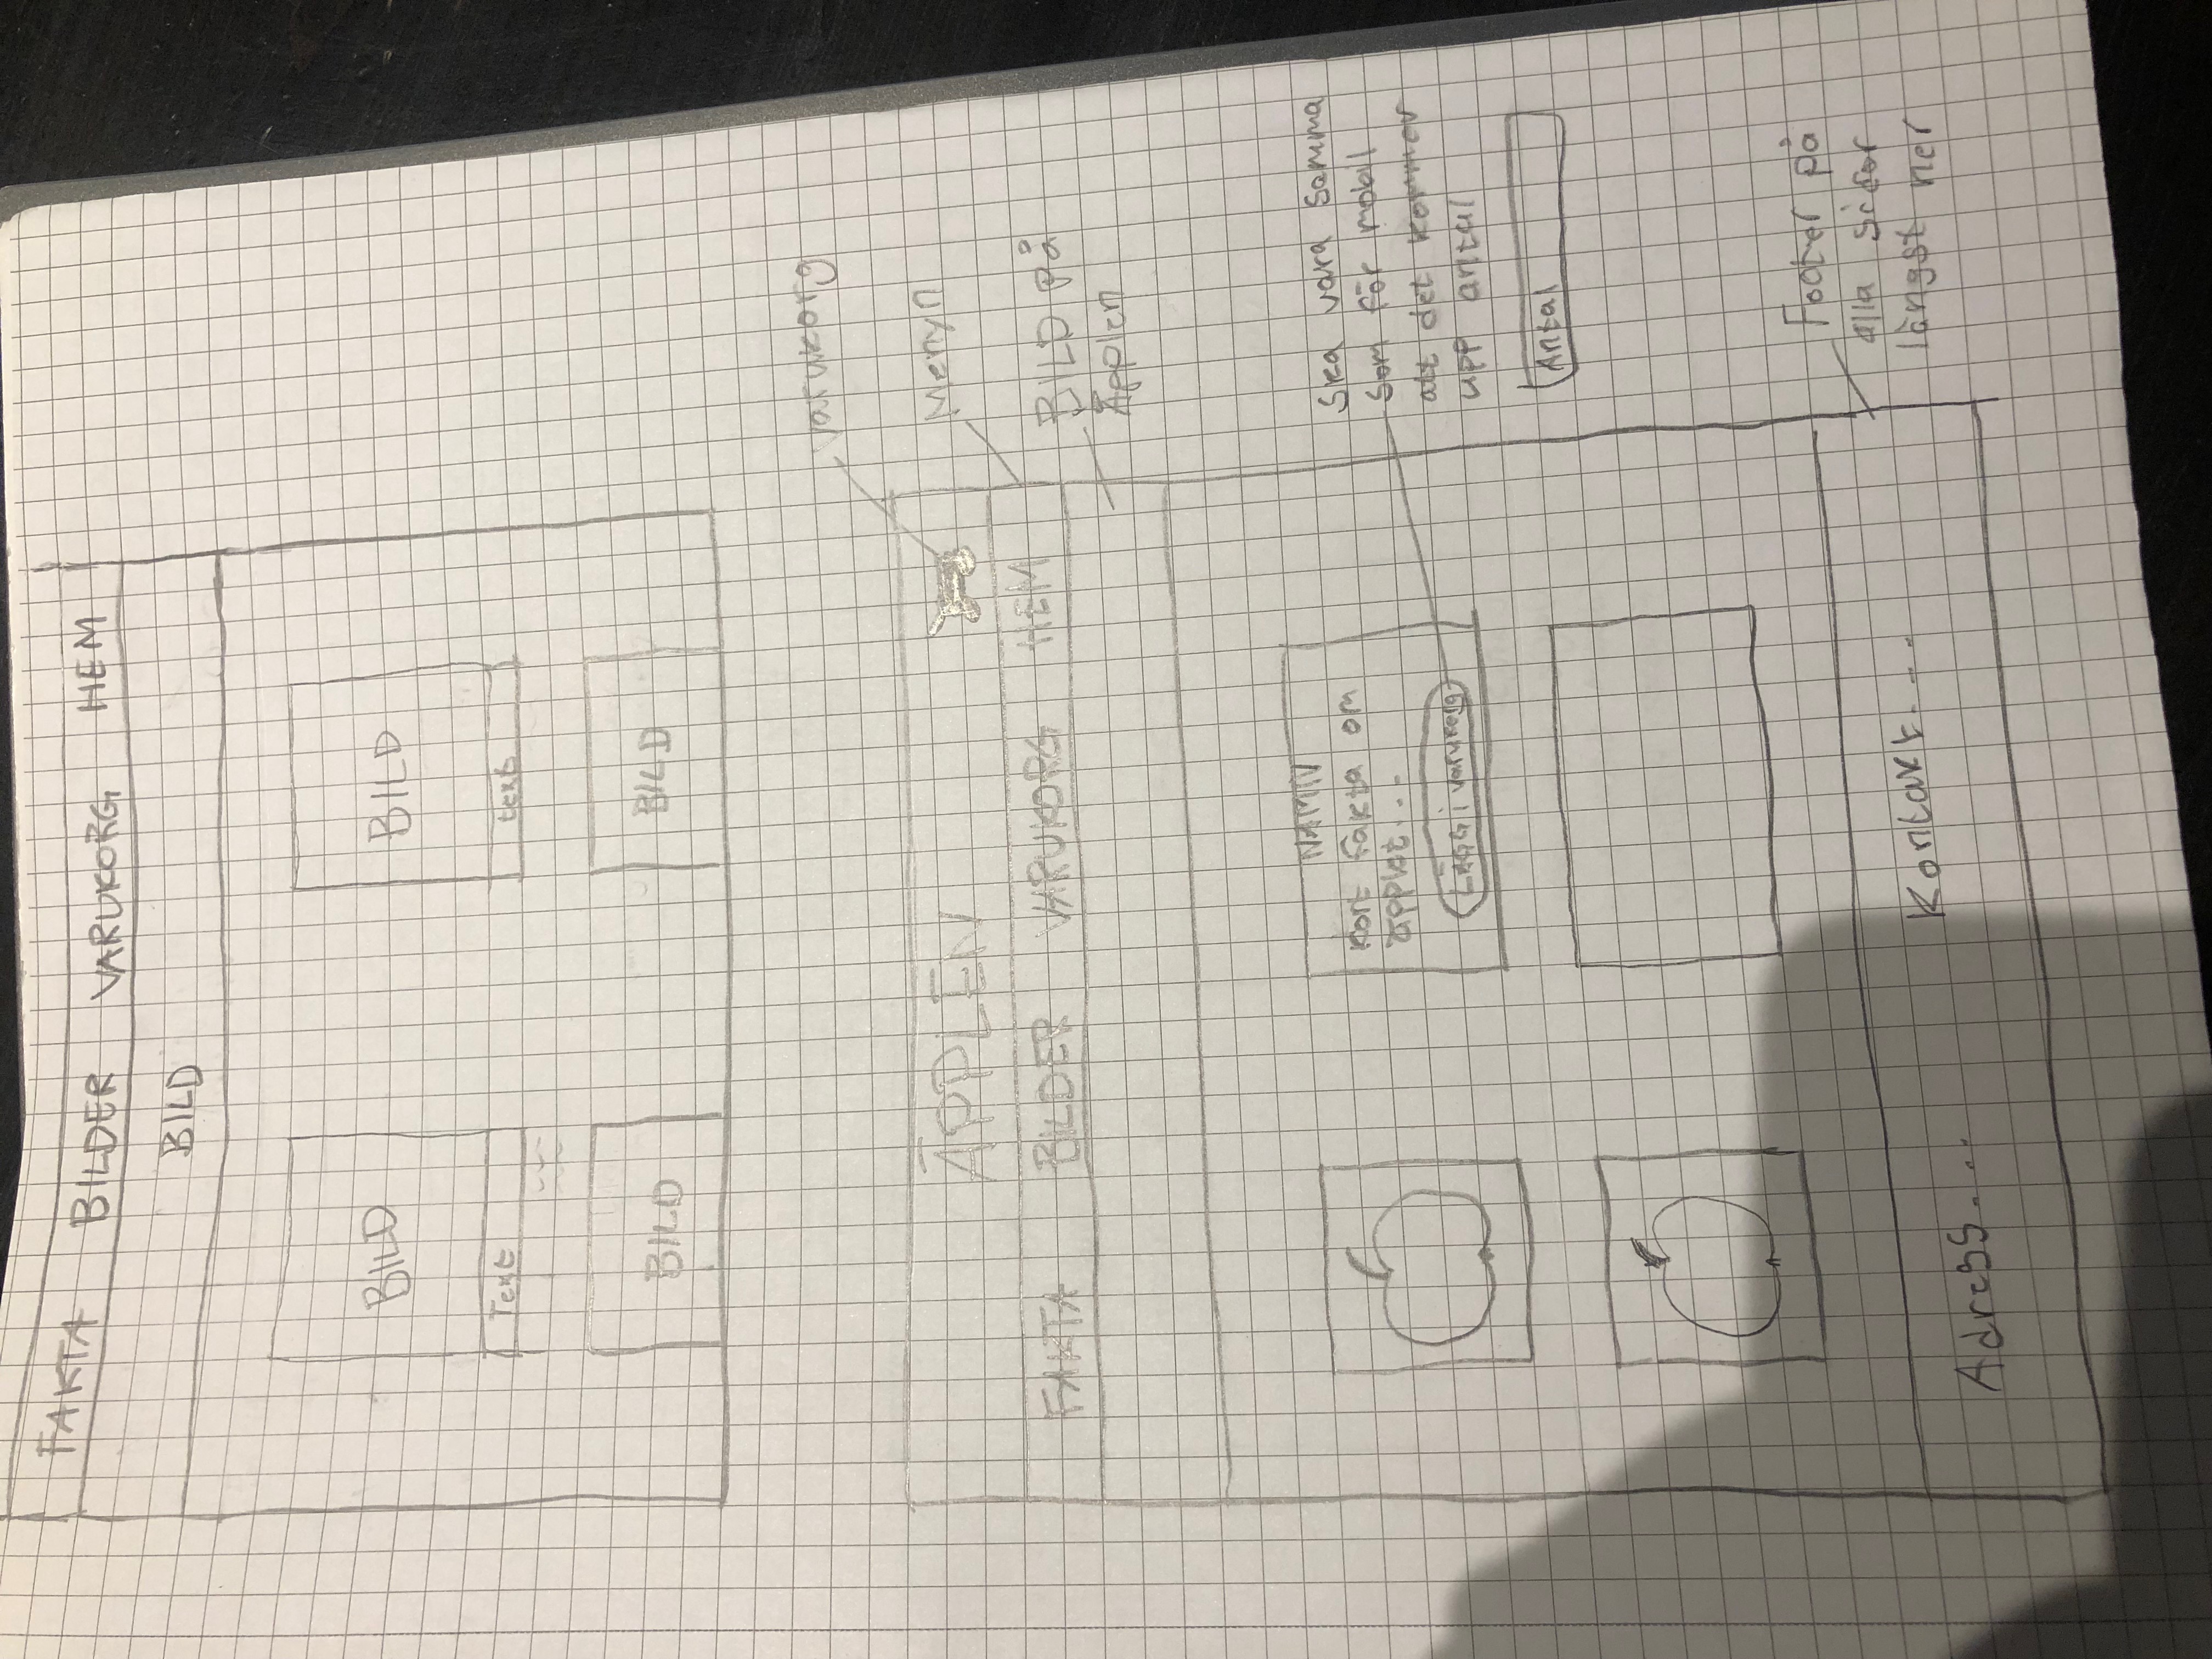 FAKTA BILDER VARUKORG HEM
BILD
BILD BILD
Text text
BILD BILD
varukorg
ÄPPLEN
Menyn
FAKTA BILDER VARUKORG HEM
BILD på
Äpplen
NAMN
Kort fakta om
äpplet...
LÄGG i varukorg
Ska vara samma
som för mobil
att det kommer
upp antal
Antal
Footer på
alla sidor
längst ner
Adress.... Kontakt....